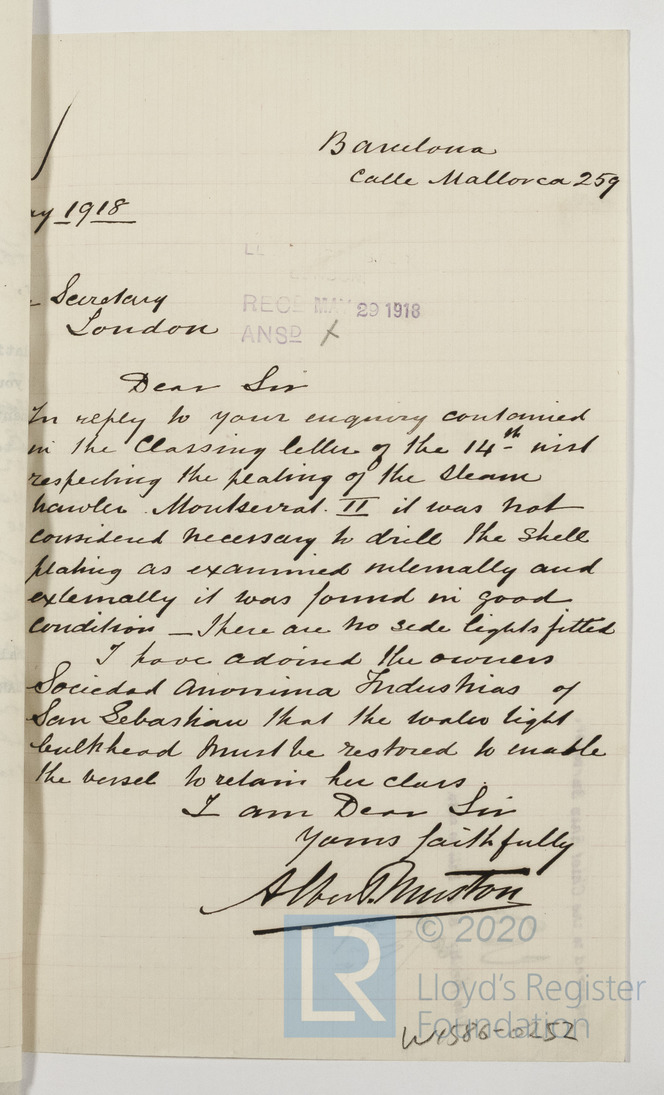 Barcelona
Calle Mallorca 259
ay 1918
Secretary
London
RECD MAY 29 1918
ANSD
Dear Sir
In reply to your enquiry contained
in the Classing letter of the 14th inst
respecting the plating of the Steam
trawler Montserrat II it was not
considered necessary to drill the shell
plating as examined internally and
externally it was found in good
condition — There are no side lights fitted
I have advised the owners
Sociedad Anonima Industrias of
San Sebastian that the water tight
bulkhead must be restored to enable
the vessel to retain her class.
I am Dear Sir
Yours faithfully
Albert Muston
© 2020
LR
Lloyd's Register
Foundation
W4586-0252